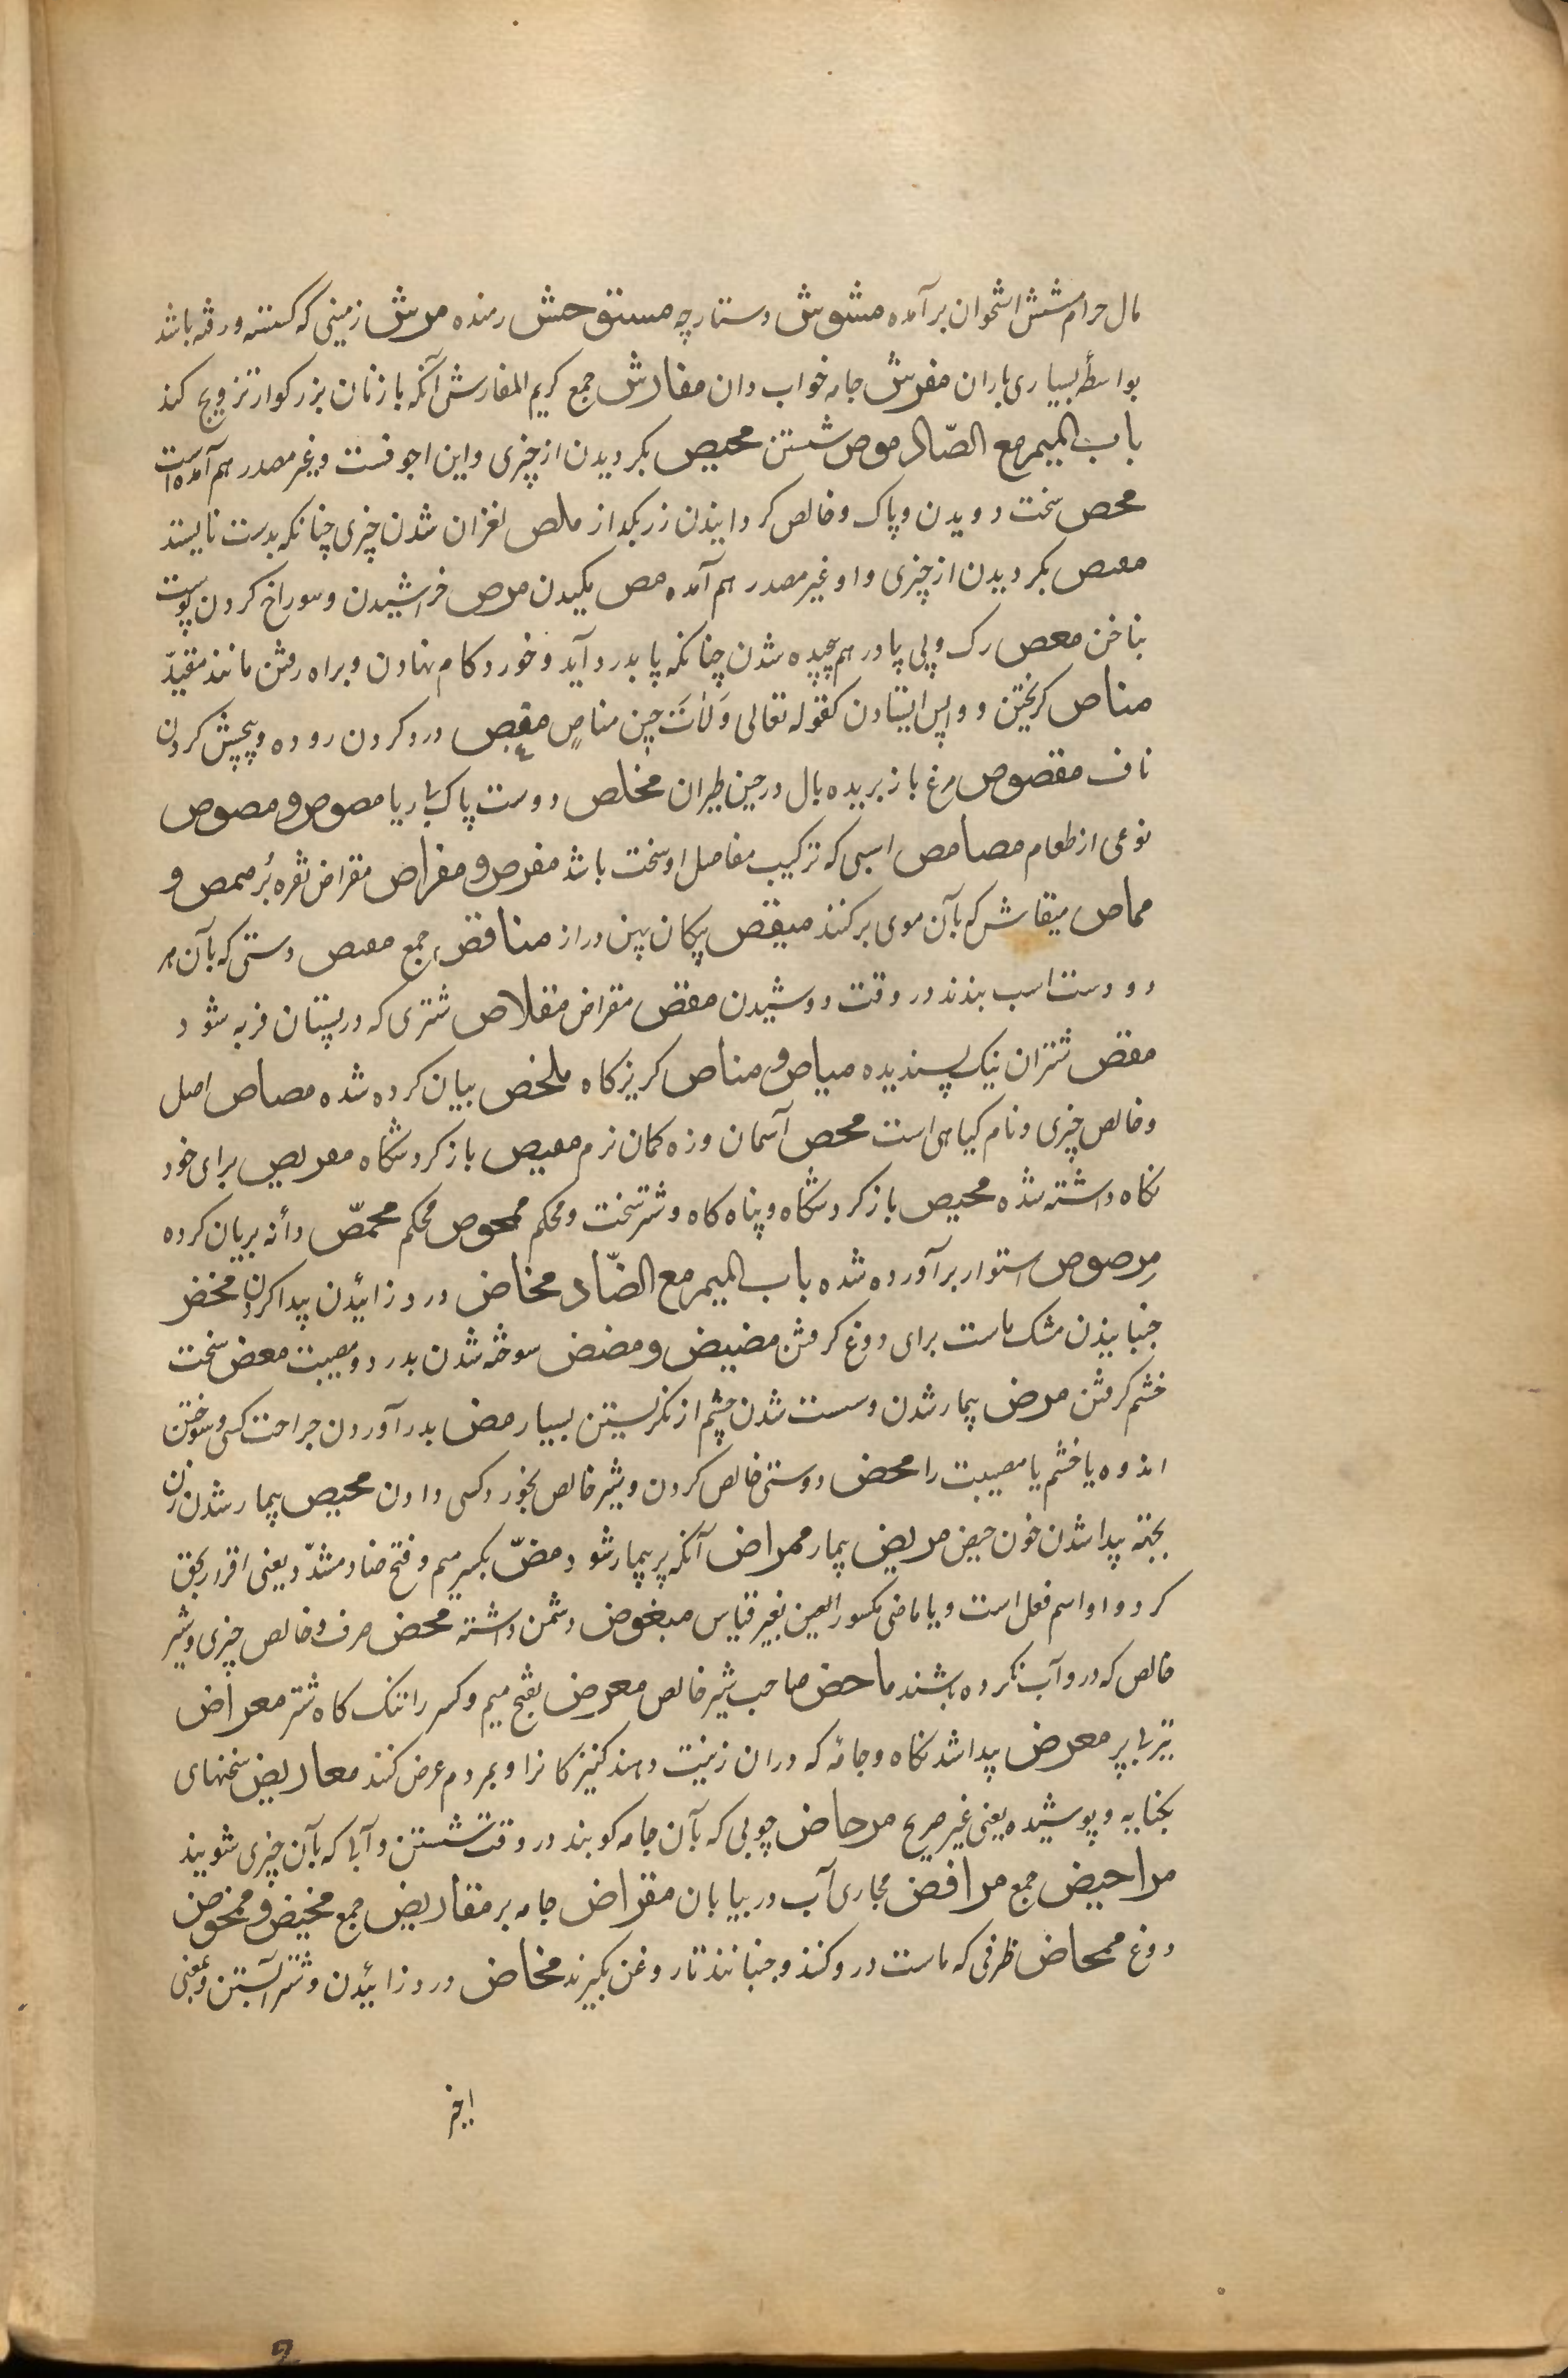 مال حرام مشش استخوان برآمده مشوش دستارچه مستوحش رمنده مرش زمینی که کسسته و رفته باشد
بواسطهٔ بسیاری باران مفرش جامه خواب دان مفارش جمع کریم المفارش آنکه با زنان بزرکوار تزویج کند
باب المیم مع الصّاد موص شستن محیص بکردیدن از چیزی و این اجوفست و غیر مصدر هم آمده است
محص سخت دویدن و پاک و خالص کردانیدن زر بکداز ملص لغزان شدن چیزی چنانکه بدست نایستد
معص بکردیدن از چیزی و او غیر مصدر هم آمده مص مکیدن مرص خراشیدن و سوراخ کردن پوست
بناخن معص رک و پی پا در هم پیچیده شدن چنانکه پا بدرد آید و خورد کام نهادن و براه رفتن مانند مقیّد
مناص کریختن و واپس ایستادن کقوله تعالی وَلَاتَ حِینَ مناصٍ مغص درد کردن روده و پیچش کردن
ناف مقصوص مرغ باز بریده بال در حین طیران مخلص دوست پاک بی ریا مصوص و مصوص
نوعی از طعام مصامص اسبی که ترکیب مفاصل او سخت باشد مفرص و مفراص مقراض نقره بُر ممص و
مماص میقاش که بآن موی برکنند میقص پیکان پهن دراز مناقص جمع معص دستی که بآن هر
دو دست اسب بندند در وقت دوشیدن مقص مقراض مقلاص شتری که در پستان فربه شود
مغص شتران نیک پسندیده میاص و مناص کریزکاه ملخص بیان کرده شده مصاص اصل
و خالص چیزی و نام کیاهی است محص آسمان و زه کمان نرم معیص باز کردشکاه معربص برای خود
نکاه داشته شده محیص باز کردشکاه و پناه کاه و شتر سخت و محکم ممحوص محکم محمّص دانه بریان کرده
مرصوص استوار برآورده شده باب المیم مع الضّاد مخاض درد زائیدن پیدا کردن مخض
جنبانیدن مشک ماست برای دوغ کرفتن مضیض و مضض سوخته شدن بدرد و مصیبت معض سخت
خشم کرفتن مرض بیمار شدن و سست شدن چشم از نکریستن بسیار مض بدرد آوردن جراحت کسی و سوختن
اندوه یا خشم یا مصیبت را محض دوستی خالص کردن و شیر خالص بخورد کسی دادن محیض بیمار شدن زن
بجهته پیدا شدن خون حیض مریض بیمار ممراض آنکه پر بیمار شود مضّ بکسر میم و فتح ضاد مشدّد یعنی اقرار بحق
کرد و او اسم فعل است و یا ماضی مکسور العین بغیر قیاس مبغوض دشمن داشته محض صرف و خالص چیزی و شیر
خالص که در و آب نکرده باشند ماحض صاحب شیر خالص معرض بفتح میم و کسر را تنک کاه شتر معراض
تیر بی پر معرض پیدا شدنکاه و جامهٔ که دران زینت دهند کنیزکانرا و بمردم عرض کنند معاریض سخنهای
بکنایه و پوشیده یعنی غیر صریح مرحاض چوبی که بآن جامه کوبند در وقت شستن و آبی که بآن چیزی شویند
مراحیض جمع مرافض مجاری آب در بیابان مقراض جامه بر مقاریض جمع مخیض و ممخوض
دوغ ممحاض ظرفی که ماست درو کنند و جنبانند تا روغن بکیرند مخاض درد زائیدن و شتر آبستن و بمعنی
اخر